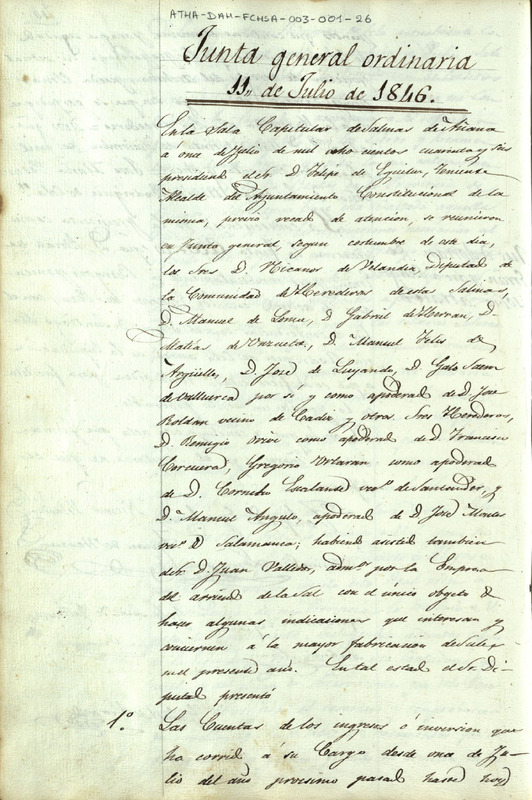 ATHA-DAH-FCHSA-003-001-26
Junta general ordinaria
11,, de Julio de 1846.
En la Sala Capitular de Salinas de Añana
á once de Julio de mil ocho cientos cuarenta y seis
presidiend el Sr. D. Felipe de Eguiluz, Teniente
Alcalde del Ayuntamiento Constitucional de la
misma, previo recad de atencion, se reunieron
en Junta general, segun costumbre de este dia,
los Sres D. Nicanor de Velandia, Diputad de
la Comunidad de Herederos de estas Salinas,
D. Manuel de Loma, D. Gabriel de Herran, D.
Matías de Unzueta, D. Manuel Felix de
Argüelles, D. José de Luyando, D. Galo Saenz
de Valluerca por sí y como apoderad de D. José
Roldan vecino de Cadiz y otros Sres Herederos,
D. Remigio Orive como apoderad de D. Francisco
Corcuera, Gregorio Urtaran como apoderad
de D. Cornelio Escalante vecº de Santander, y
D. Manuel Angulo, apoderad de D. José
vecº de Salamanca; habiend asistid tambien
el Sr. D. Juan admor por la Empresa
del arriend de la Sal con el único objeto de
hacer algunas indicaciones que interesan y
conciernen á la mayor fabricacion de Sal en
el presente año. En tal estad el Sr. Di-
putad presentó
1º. Las Cuentas de los ingresos é inversion que
ha corrid á su Cargo desde once de Ju-
lio del año procsimo pasad hasta hoy